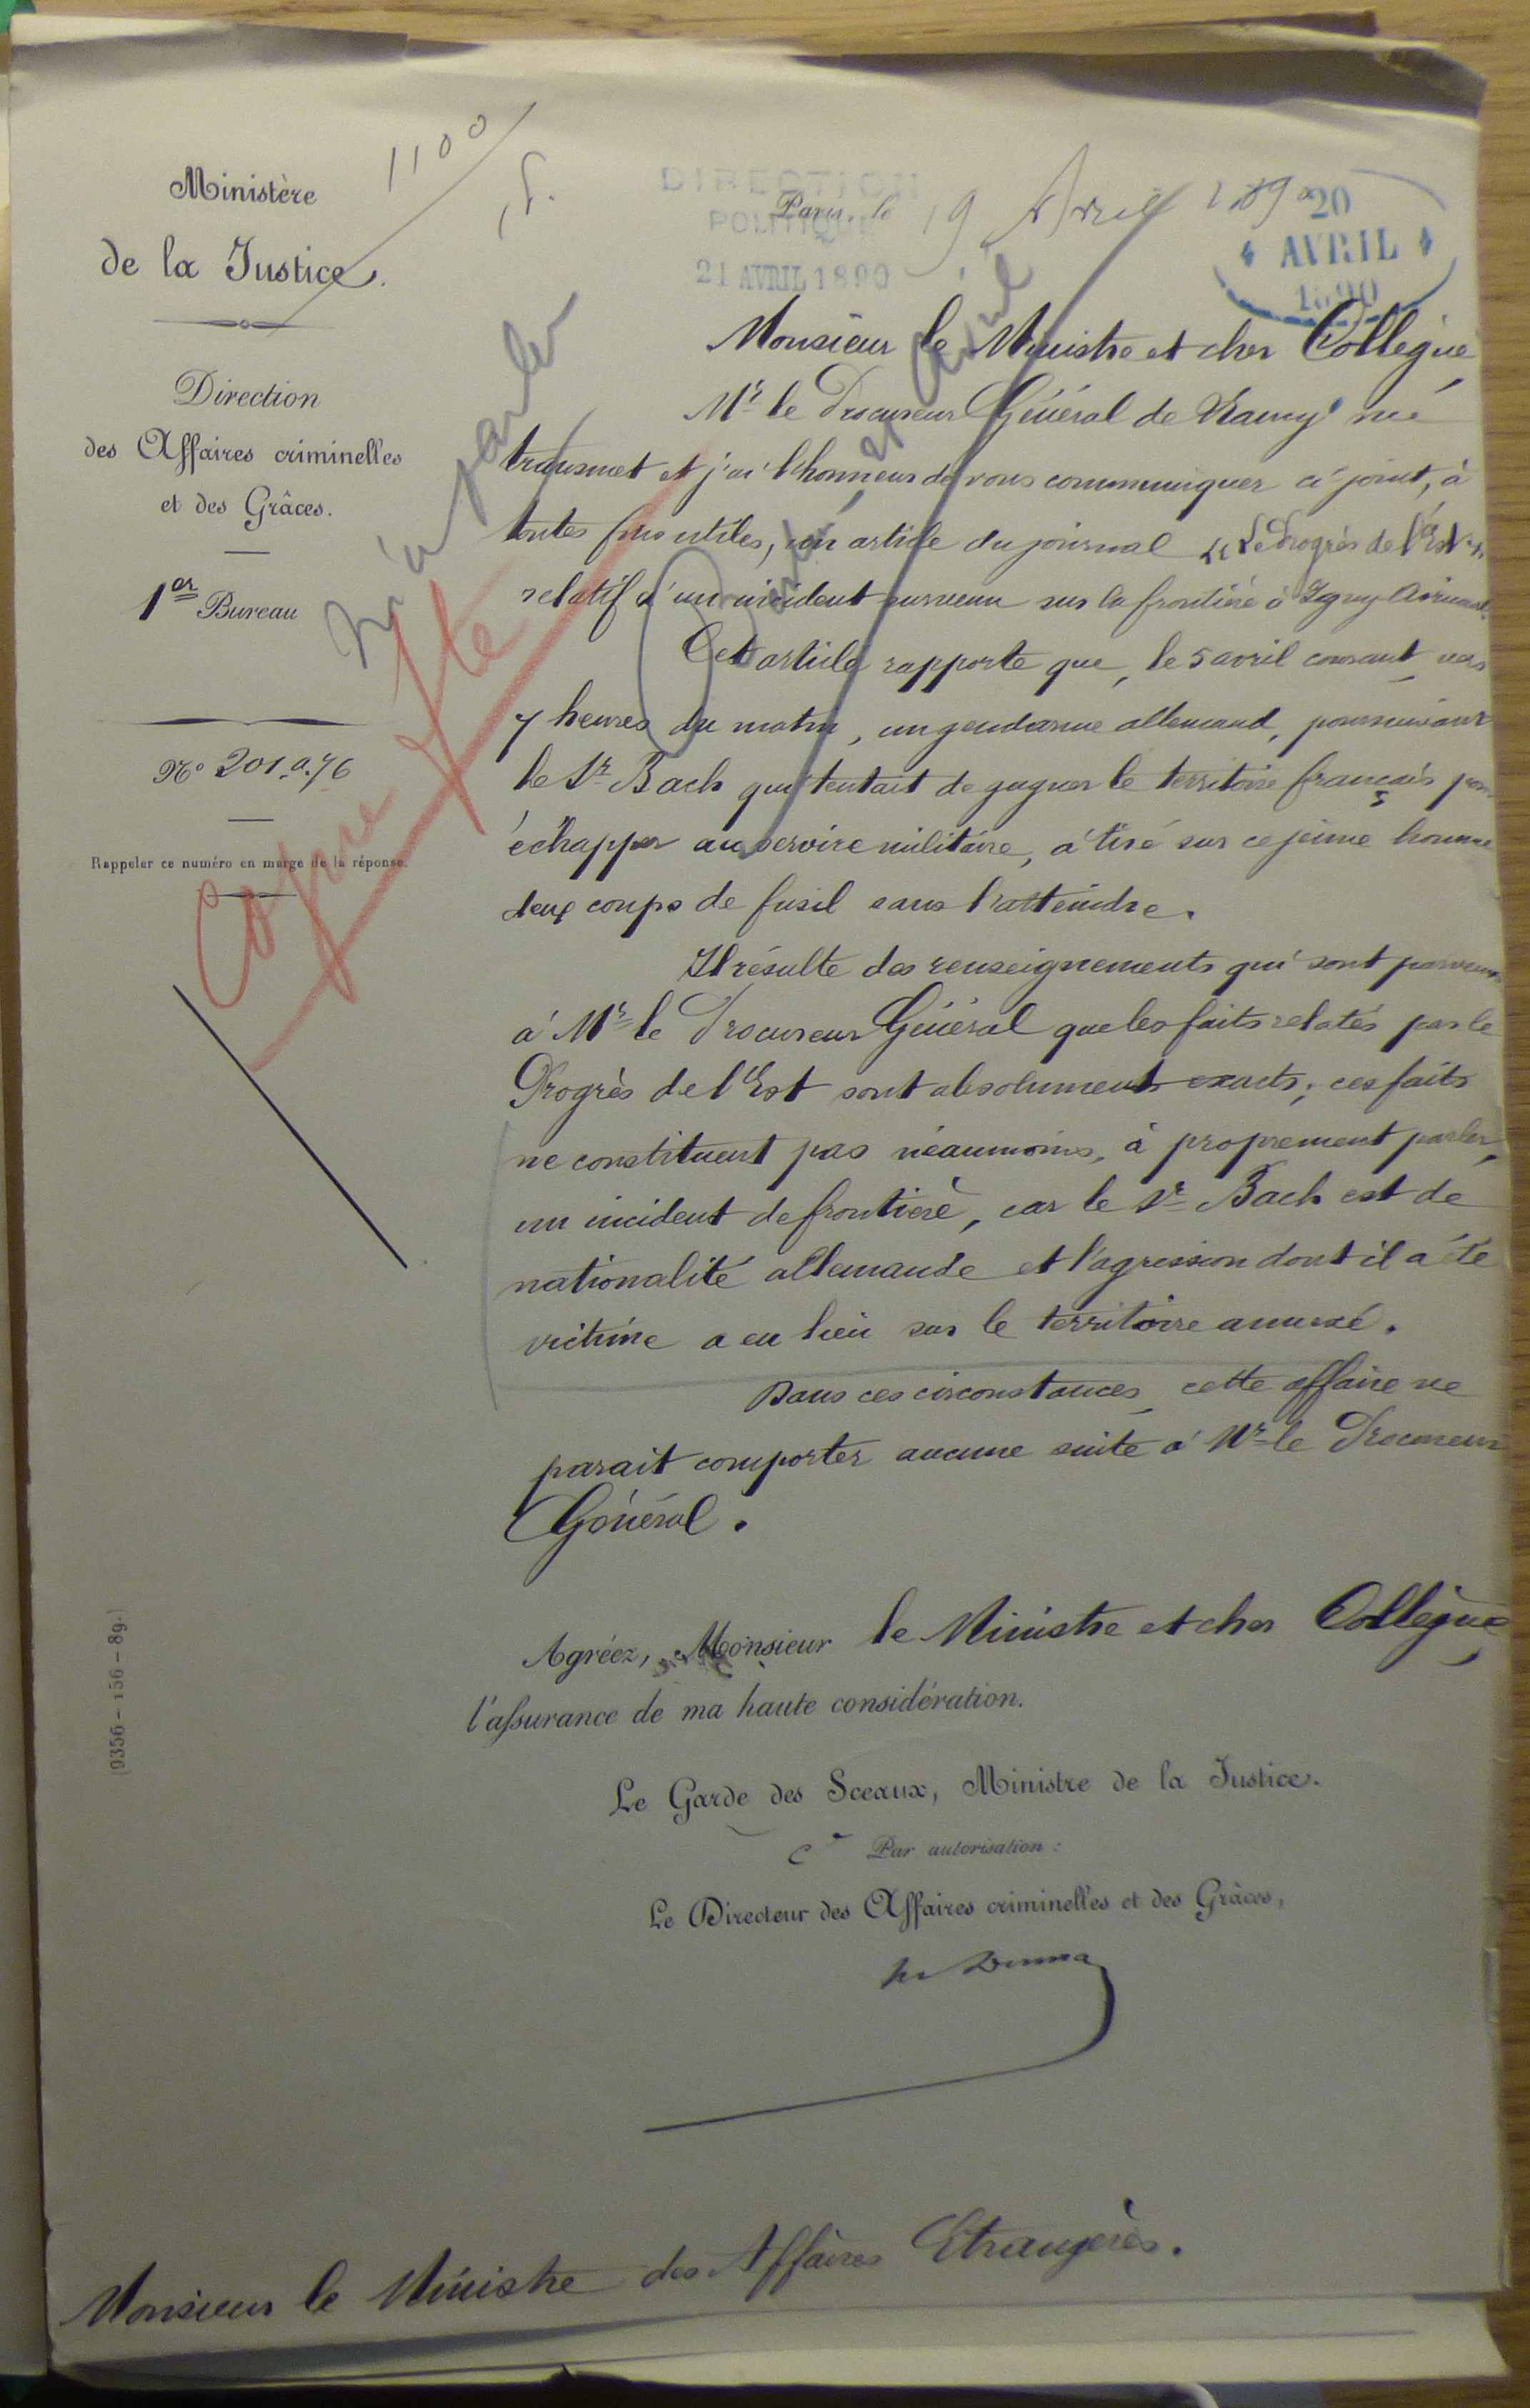 1100
Ministère
de la Justice.
Direction
des Affaires criminelles
et des Grâces.
1er Bureau
No 201.a.76
Rappeler ce numéro en marge de la réponse.
Copie fte
m'en parler
DIRECTION
POLITIQUE
21 AVRIL 1890
Paris, le 19 Avril 1890
20
AVRIL
1890
Monsieur le Ministre et cher Collègue,
Mr le Procureur Général de Nancy me
transmet et j'ai l'honneur de vous communiquer ci-joint, à
toutes fins utiles, un article du journal "Le Progrès de l'Est"
relatif à un incident survenu sur la frontière à Igney-Avricourt.
Cet article rapporte que, le 5 avril courant, vers
7 heures du matin, un gendarme allemand, poursuivant
le Sr Bach qui tentait de gagner le territoire français pour
échapper au service militaire, a tiré sur ce jeune homme
deux coups de fusil sans l'atteindre.
Il résulte des renseignements qui sont parvenus
à Mr le Procureur Général que les faits relatés par le
Progrès de l'Est sont absolument exacts; ces faits
ne constituent pas néanmoins, à proprement parler,
un incident de frontière, car le Sr Bach est de
nationalité allemande et l'agression dont il a été
victime a eu lieu sur le territoire annexé.
Dans ces circonstances, cette affaire ne
parait comporter aucune suite à Mr le Procureur
Général.
Agréez, Monsieur le Ministre et cher Collègue,
l'assurance de ma haute considération.
Le Garde des Sceaux, Ministre de la Justice.
Par autorisation :
Le Directeur des Affaires criminelles et des Grâces,
Monsieur le Ministre des Affaires Etrangères.
(9356-156-89.)